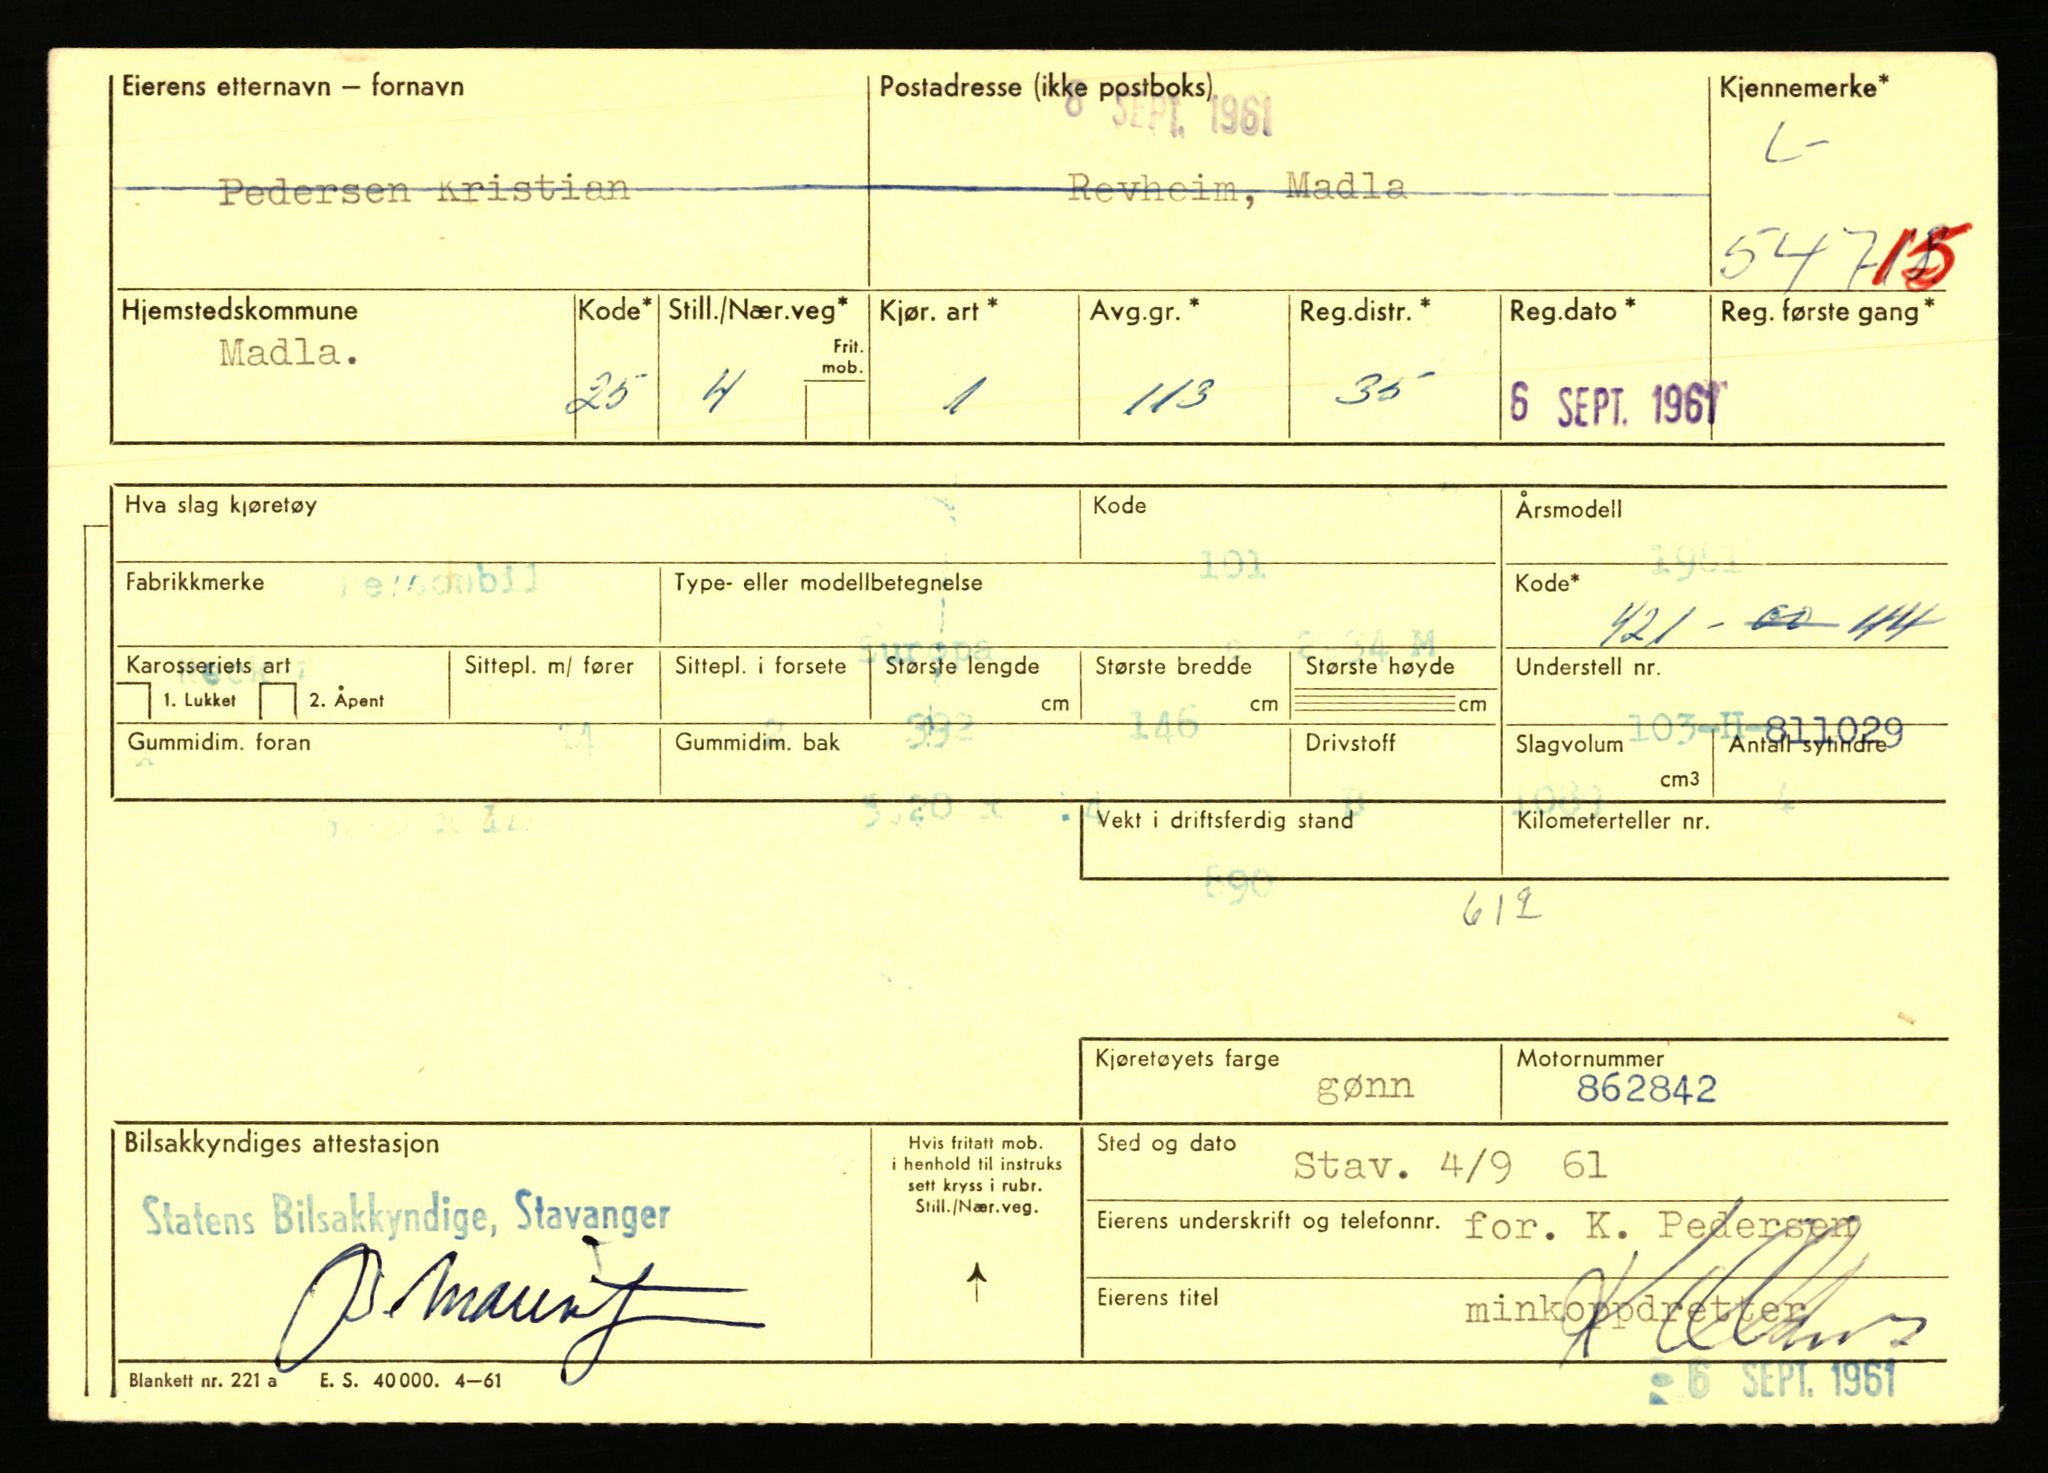 Eierens etternavn – fornavn
Postadresse (ikke postboks)
Kjennemerke*
8 SEPT. 1961
L-
Pedersen Kristian
Revheim, Madla
54715
Hjemstedskommune
Kode*
Still./Nær.veg*
Kjør. art*
Avg.gr.*
Reg.distr.*
Reg.dato*
Reg. første gang*
Madla.
Frit. mob.
25
4
1
113
35
6 SEPT. 1961
Hva slag kjøretøy
Kode
Årsmodell
Personbil
101
1961
Fabrikkmerke
Type- eller modellbetegnelse
Kode*
421 - 00 44
Europa
34 M
Karosseriets art
Sittepl. m/ fører
Sittepl. i forsete
Største lengde
Største bredde
Største høyde
Understell nr.
1. Lukket
2. Åpent
cm
cm
cm
x
2
392
146
103-H-811029
Gummidim. foran
Gummidim. bak
Drivstoff
Slagvolum
Antall sylindre
cm3
5.20 x 14
B
4
Vekt i driftsferdig stand
Kilometerteller nr.
690
612
Kjøretøyets farge
Motornummer
gønn
862842
Bilsakkyndiges attestasjon
Hvis fritatt mob.
i henhold til instruks
sett kryss i rubr.
Still./Nær.veg.
Sted og dato
Stav. 4/9 61
Statens Bilsakkyndige, Stavanger
Eierens underskrift og telefonnr.
for. K. Pedersen
Eierens titel
minkoppdretter
Blankett nr. 221 a E. S. 40 000. 4–61
6 SEPT. 1961